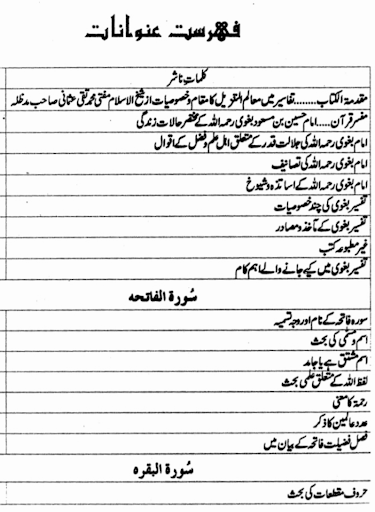 فہرست عنوانات
کلمات ناشر
مقدمۃ الکتاب........تفاسیر میں معالم التنزیل کا مقام و خصوصیات از شیخ الاسلام مفتی محمد تقی عثمانی صاحب مدظلہ
مفسر قرآن.....امام حسین بن مسعود بغوی رحمہ اللہ کے مختصر حالات زندگی
امام بغوی رحمہ اللہ کی جلالت قدر کے متعلق اہل علم و فضل کے اقوال
امام بغوی رحمہ اللہ کی تصانیف
امام بغوی رحمہ اللہ کے اساتذہ و شیوخ
تفسیر بغوی کی چند خصوصیات
تفسیر بغوی کے مآخذ و مصادر
غیر مطبوعہ کتب
تفسیر بغوی میں کیے جانے والے اہم کام
سُورة الفاتحه
سورہ فاتحہ کے نام اور وجہ تسمیہ
اسم و مسمی کی بحث
اسم مشتق ہے یا جامد
لفظ اللہ کے متعلق علمی بحث
رحمۃ کا معنی
عدد عالمین کا ذکر
فصل فضیلت فاتحہ کے بیان میں
سُورة البقره
حروف مقطعات کی بحث